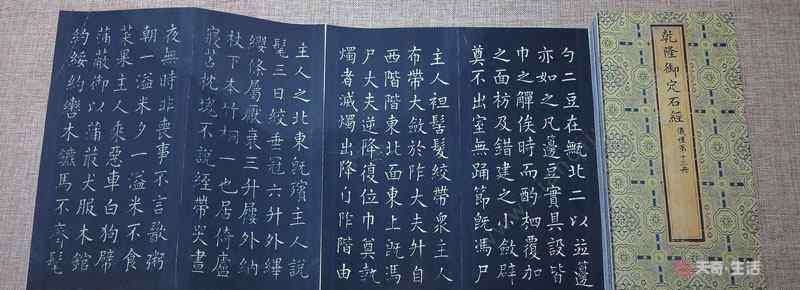 乾隆御定石經
儀禮第十三冊
勺二豆在甒北二以竝籩
亦如之凡籩豆實具設皆
巾之觶俟時而酌柶覆加
之面枋及錯建之小斂辟
奠不出室無踊節既馮尸
主人袒髺髮絞帶眾主人
布帶大斂於阼大夫升自
西階階東北面東上既馮
尸大夫逆降復位巾奠執
燭者滅燭出降自阼階由
主人之北東既殯主人說
髦三日絞垂冠六升外縪
纓條屬厭衰三升屨外納
杖下本竹桐一也居倚廬
寢苫枕塊不說絰帶哭晝
夜無時非喪事不言歠粥
朝一溢米夕一溢米不食
菜果主人乘惡車白狗幦
蒲蔽御以蒲菆犬服木錧
約綏約轡木鑣馬不齊髦
天奇·生活